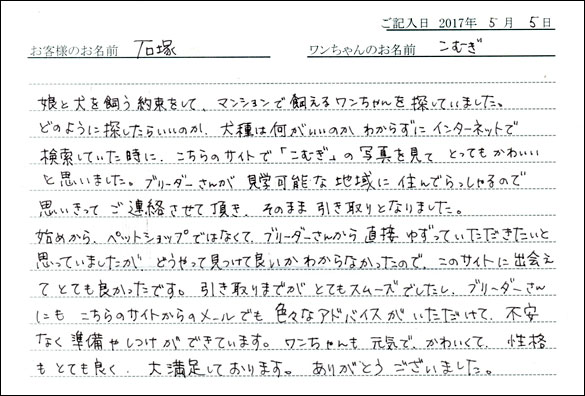 ご記入日 2017年 5月 5日
お客様のお名前 石塚 ワンちゃんのお名前 こむぎ
娘と犬を飼う約束をして、マンションで飼えるワンちゃんを探していました。
どのように探したらいいのか、犬種は何がいいのか わからずに インターネットで
検索していた時に、こちらのサイトで「こむぎ」の写真を見て とってもかわいい
と思いました。ブリーダーさんが 見学可能な地域に 住んでらっしゃるので
思いきって ご連絡させて頂き、そのまま 引き取りとなりました。
始めから、ペットショップではなくて、ブリーダーさんから 直接 ゆずっていただきたいと
思っていましたが、どうやって見つけて良いか わからなかったので、このサイトに出会え
て とても良かったです。引き取りまでが とてもスムーズでしたし、ブリーダーさん
にも こちらのサイトからのメールでも 色々なアドバイスが いただけて、不安
なく 準備やしつけが できています。ワンちゃんも 元気で、かわいくて、性格
も とても良く、大満足しております。ありがとう ございました。